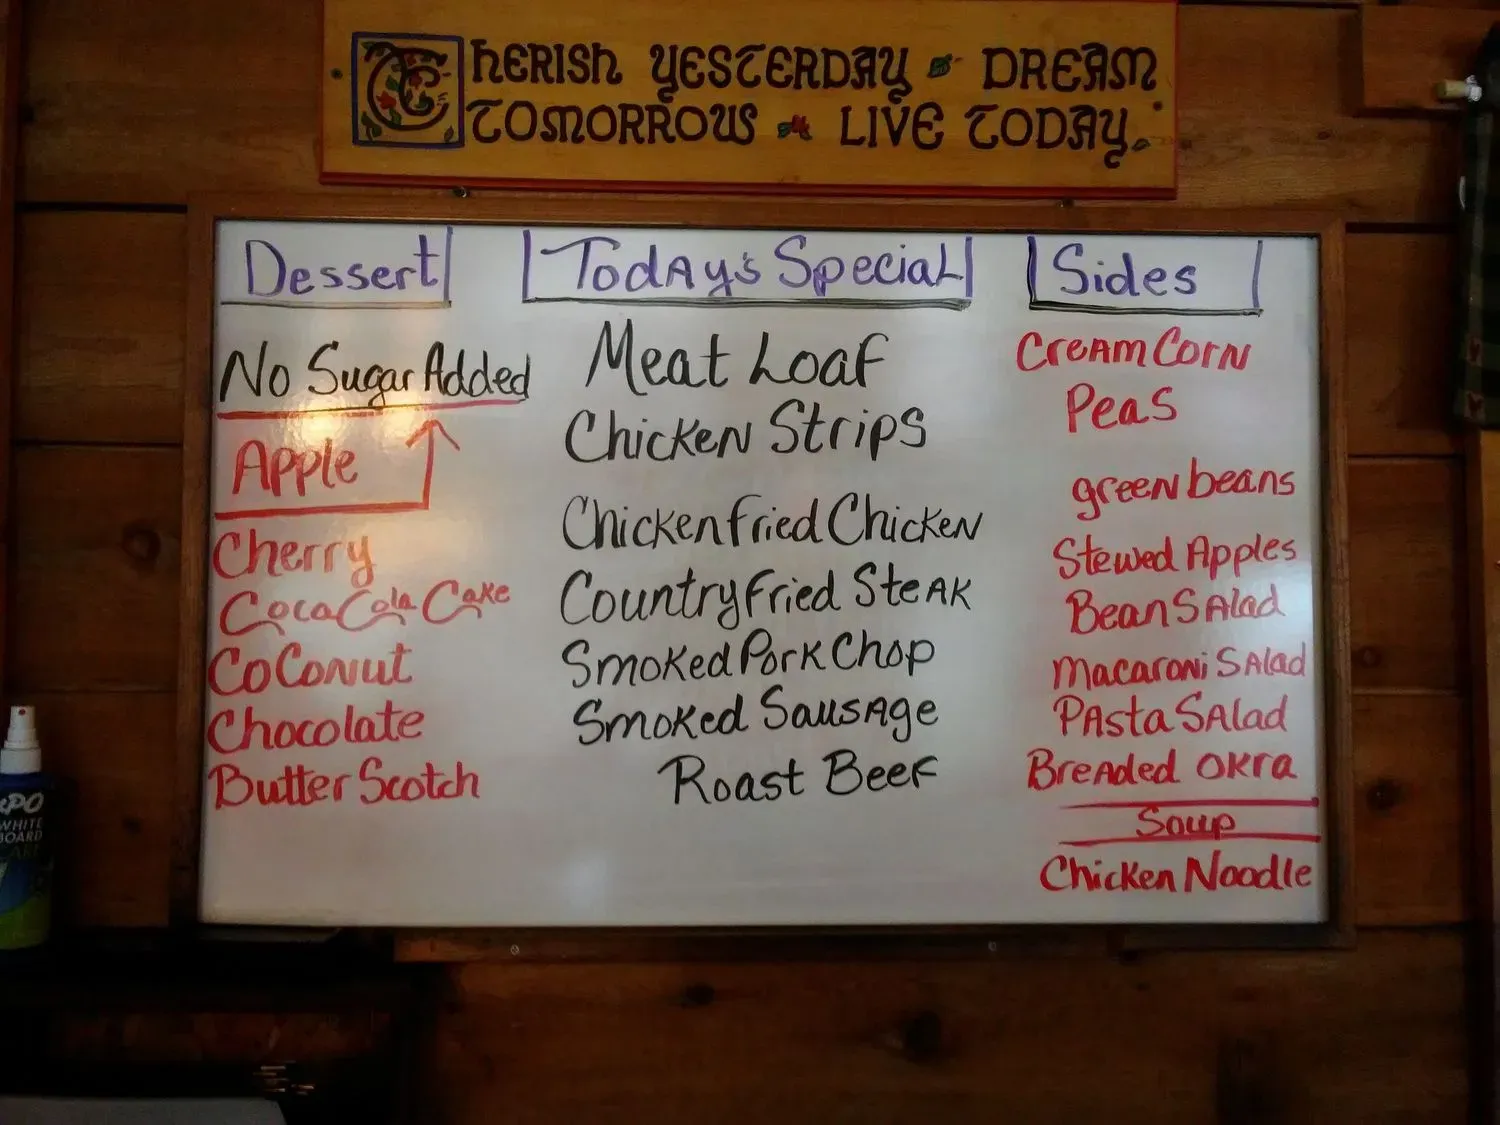 CHERISH YESTERDAY DREAM
TOMORROW LIVE TODAY.
Dessert
No Sugar Added
Apple
Cherry
Coca Cola Cake
Coconut
Chocolate
Butter Scotch
Today's Special
Meat Loaf
Chicken Strips
Chicken Fried Chicken
Country Fried Steak
Smoked Pork Chop
Smoked Sausage
Roast Beef
Sides
Cream Corn
Peas
green beans
Stewed Apples
Bean Salad
Macaroni Salad
Pasta Salad
Breaded Okra
Soup
Chicken Noodle
EXPO
WHITE
BOARD
CARE